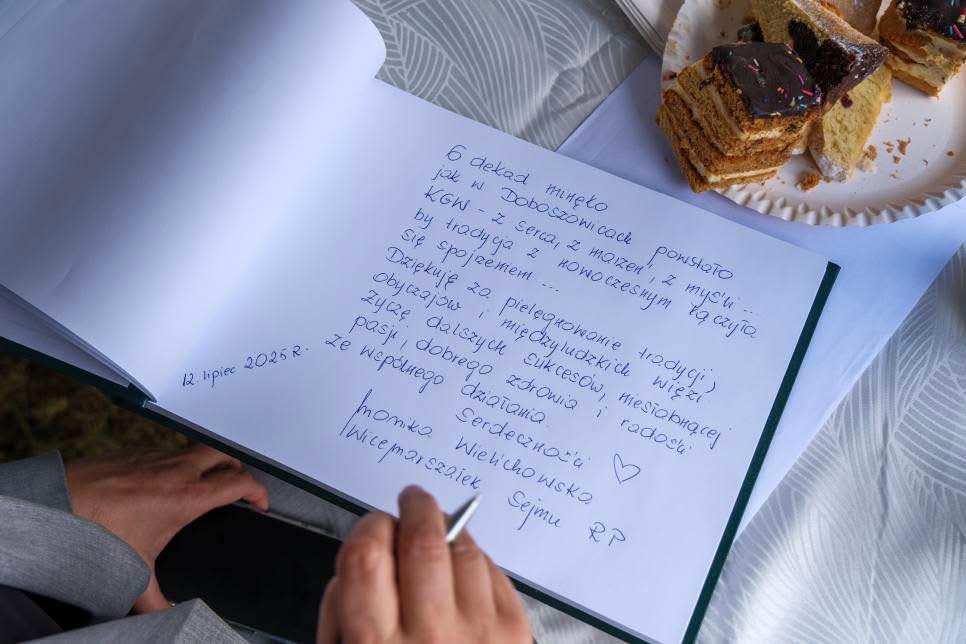 6 dekad minęło
jak w Doboszowicach powstało
KGW - z serca, z marzeń, z myśli...
by tradycja z nowoczesnym łączyła
się spojrzeniem...
Dziękuję za pielęgnowanie tradycji,
obyczajów i międzyludzkich więzi
Życzę dalszych sukcesów, niesłabnącej
pasji, dobrego zdrowia i radości
ze wspólnego działania.
Serdeczności ♡
Monika Wielichowska
Wicemarszałek Sejmu RP
12. lipiec 2025 R.